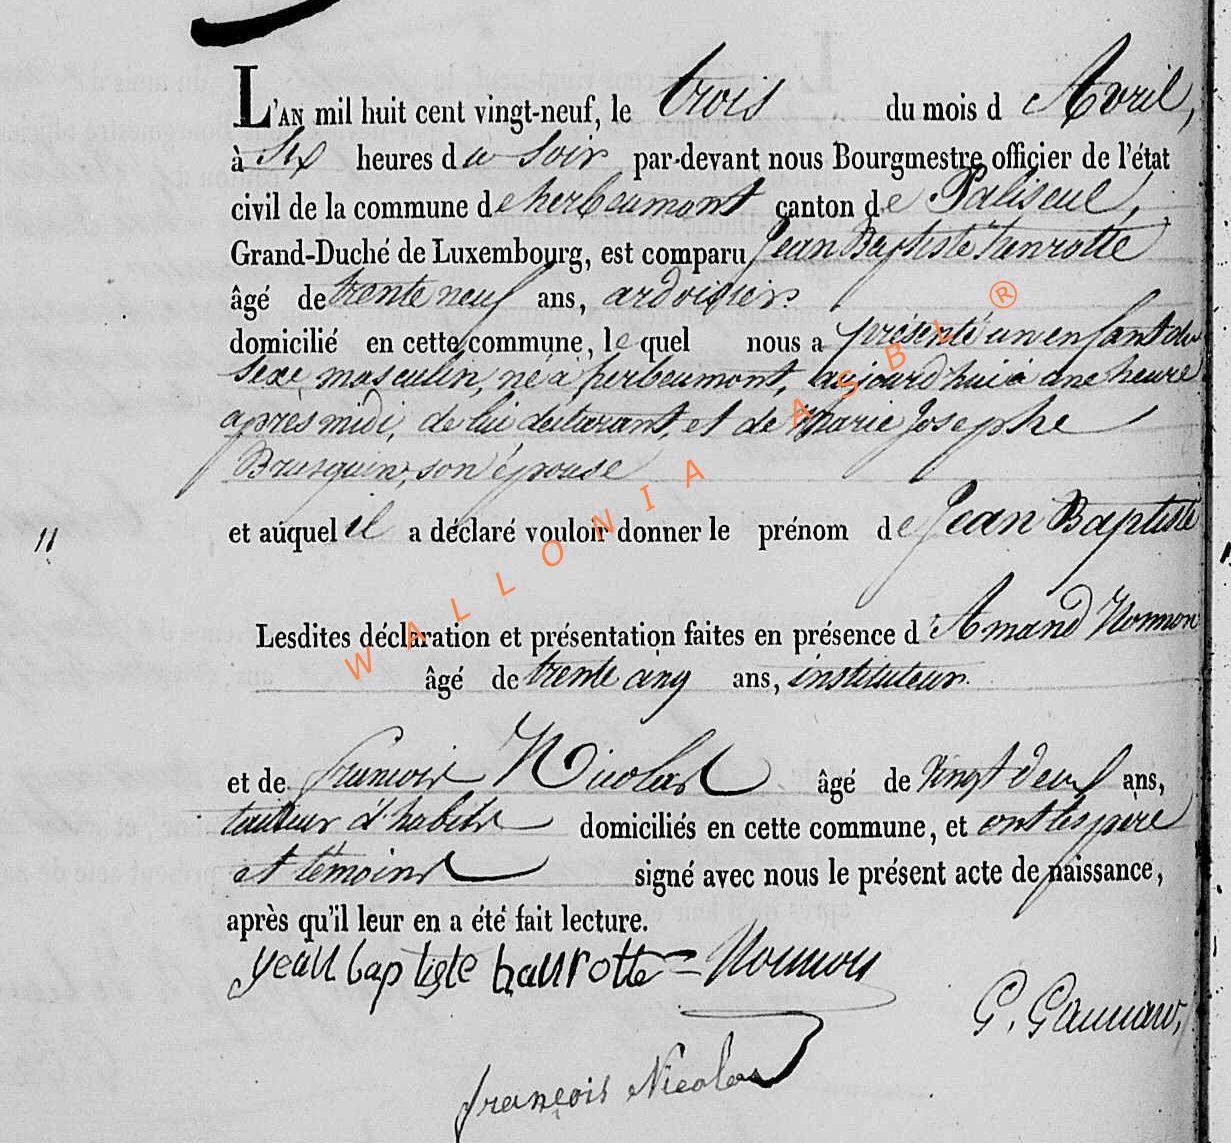 L'AN mil huit cent vingt-neuf, le trois du mois d Avril,
à Six heures du Soir par-devant nous Bourgmestre officier de l'état
civil de la commune de herbeumont canton de Paliseul,
Grand-Duché de Luxembourg, est comparu Jean Baptiste hanrotte
âgé de trente neuf ans, ardoisier
domicilié en cette commune, le quel nous a présenté un enfant du
Sexe masculin, né à herbeumont, aujourd'hui à une heure
après midi, de lui déclarant, et de Marie Josephe
son épouse
et auquel il a déclaré vouloir donner le prénom de Jean Baptiste
11
Lesdites déclaration et présentation faites en présence d'Amand Nonnon
âgé de trente cinq ans, instituteur
et de francois Nicolas âgé de Vingt deux ans,
tailleur d'habits domiciliés en cette commune, et ont les père
et témoins signé avec nous le présent acte de naissance,
après qu'il leur en a été fait lecture.
jean baptiste hanrotte Nonnon
françois Nicolas
WALLONIA ASBL ®